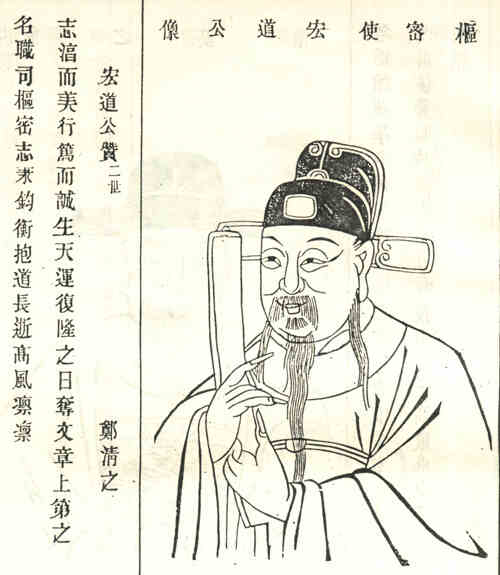 樞密使宏道公像
宏道公贊二世 鄭清之
志湻而美行篤而誠生天運復隆之日奪文章上第之
名職司樞密志秉鈞衡抱道長逝高風凛凛